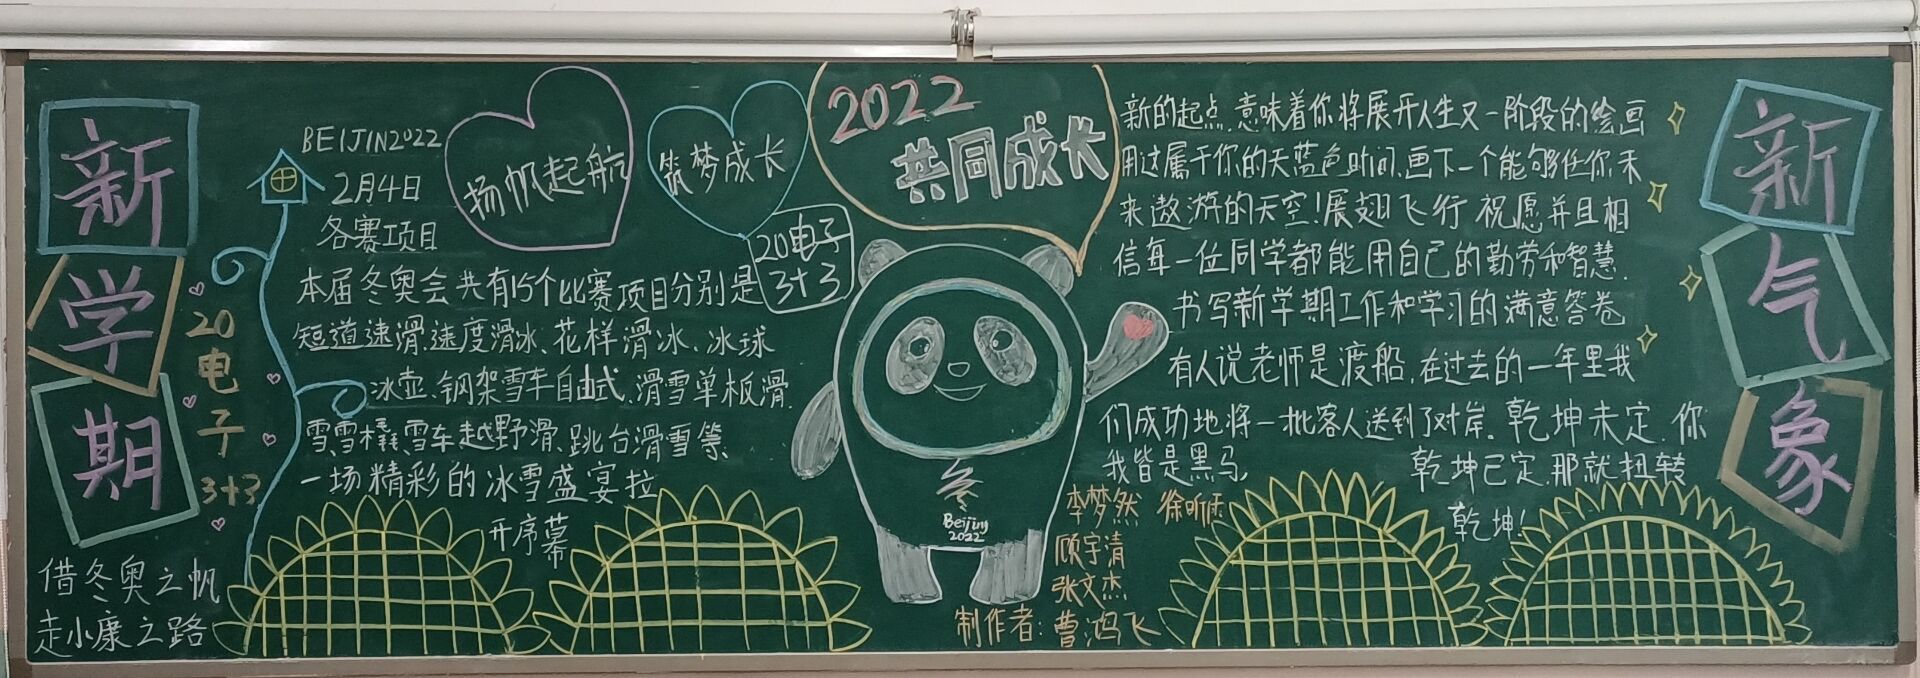 新
学
期
20
电
子
3+3
借冬奥之帆
走小康之路
BEIJIN2022
2月4日
各赛项目
扬帆起航
筑梦成长
2022
共同成长
20电子
3+3
本届冬奥会共有15个比赛项目分别是
短道速滑.速度滑冰、花样滑冰、冰球
冰壶.钢架雪车自由式.滑雪单板滑.
雪、雪橇、雪车越野滑.跳台滑雪等.
一场精彩的冰雪盛宴拉
开序幕
Beijing
2022
新的起点.意味着你将展开人生又一阶段的绘画
用这属于你的天蓝色时间.画下一个能够任你未
来遨游的天空!展翅飞行 祝愿并且相
信每一位同学都能用自己的勤劳和智慧.
书写新学期工作和学习的满意答卷
有人说老师是渡船.在过去的一年里我
们成功地将一批客人送到了对岸。乾坤未定.你
我皆是黑马, 乾坤已定.那就扭转
乾坤!
李梦然 徐昕
顾宇清
张文杰
制作者:曹鸿飞
新
气
象